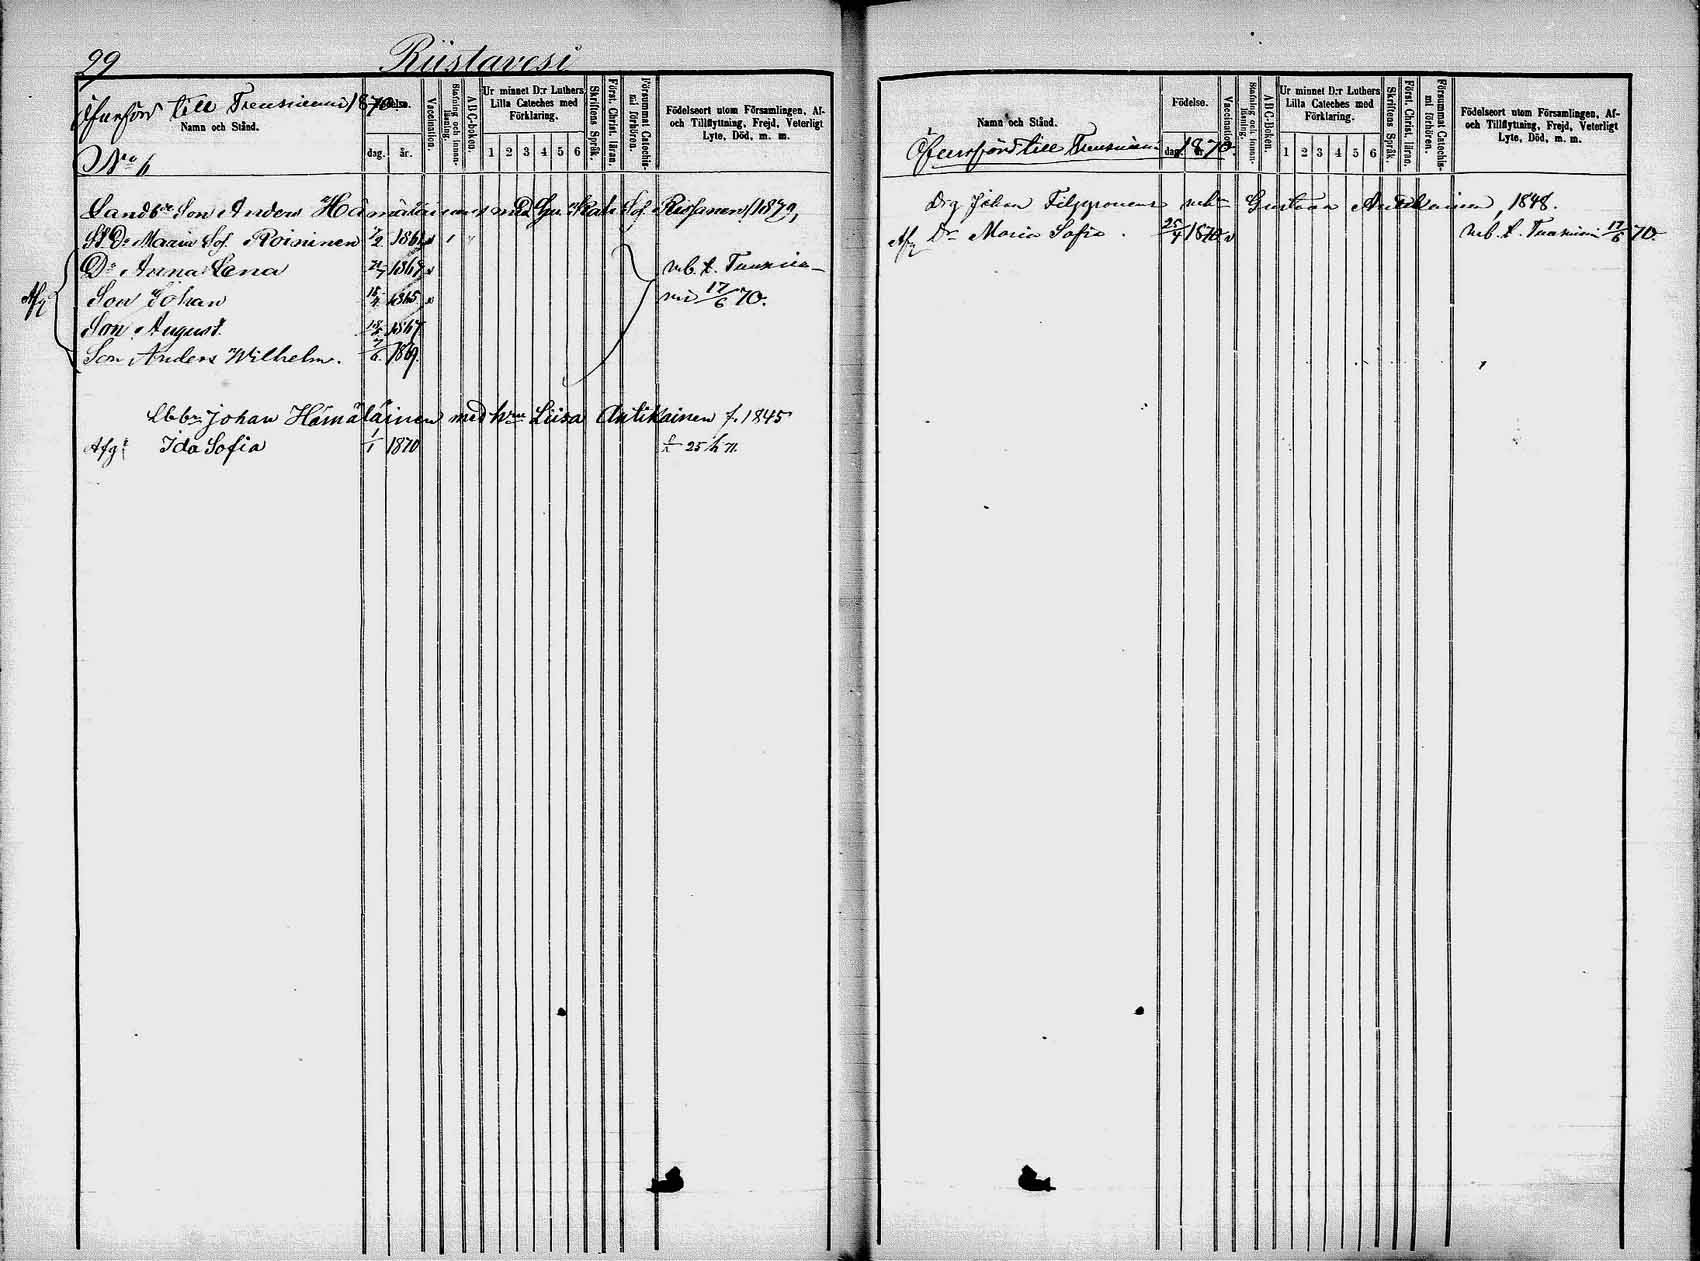 29
Riistavesi
Öfverförd till Tuusniemi 1870.
Namn och Stånd.
Födelse.
dag. år.
Vaccination.
Stafning och innanläsning.
ABC-boken.
Ur minnet D:r Luthers Lilla Cateches med Förklaring.
1 2 3 4 5 6
Skriftens Språk.
Först. Christ. läran.
Försummat Catechismi förhören.
Födelseort utom Församlingen, Af- och Tillflyttning, Frejd, Veterligt Lyte, Död, m. m.
No 6
Landb. Son Anders Hämäläinens med hu Kath. Sof. 1879,
St. Dr Maria Sof. Roininen 7/2 1861 v 1
Afg
Dr Anna Lena 21/7 1863 v mb. t. Tuusnie-
Son Johan 15/4 1865 v mi 17/6 70.
Son August. 1867
Son Anders Wilhelm. 7/6 1869.
Johan Hämäläinen med hru Liisa Antikainen f. 1845
Afg Ida Sofia 1/1 1870 25/ 71.
Namn och Stånd.
Öfverförd till Tuusniemi 1870.
Födelse.
dag. år.
Vaccination.
Stafning och innanläsning.
ABC-boken.
Ur minnet D:r Luthers Lilla Cateches med Förklaring.
1 2 3 4 5 6
Skriftens Språk.
Först. Christ. läran.
Försummat Catechismi förhören.
Födelseort utom Församlingen, Af- och Tillflyttning, Frejd, Veterligt Lyte, Död, m. m.
Drg Johan Filpponens Gustava Antikainen, 1848.
Afg Dr Maria Sofia. 25/4 1870 v mb. t. Tuusniemi 17/6 70.